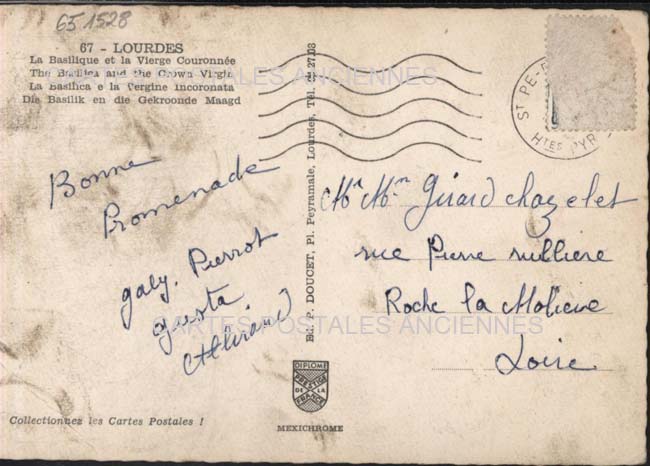 651528
67 - LOURDES
La Basilique et la Vierge Couronnée
The Basilica and the Crown Virgin
La Basilica e la Vergine Incoronata
Die Basilik en die Gekroonde Maagd
CARTES POSTALES ANCIENNES
ST PE-
Htes PYR
Bonne
Promenade
gaby. Pierrot
Ed. P. DOUCET, Pl. Peyramale, Lourdes, Tél. 27.08
Mr Mm Girard Chazelet
rue Pierre
Roche la Moliere
Loire
CARTES POSTALES ANCIENNES
DIPLOME
PRESTIGE
DE LA
FRANCE
MEXICHROME
Collectionnez les Cartes Postales !